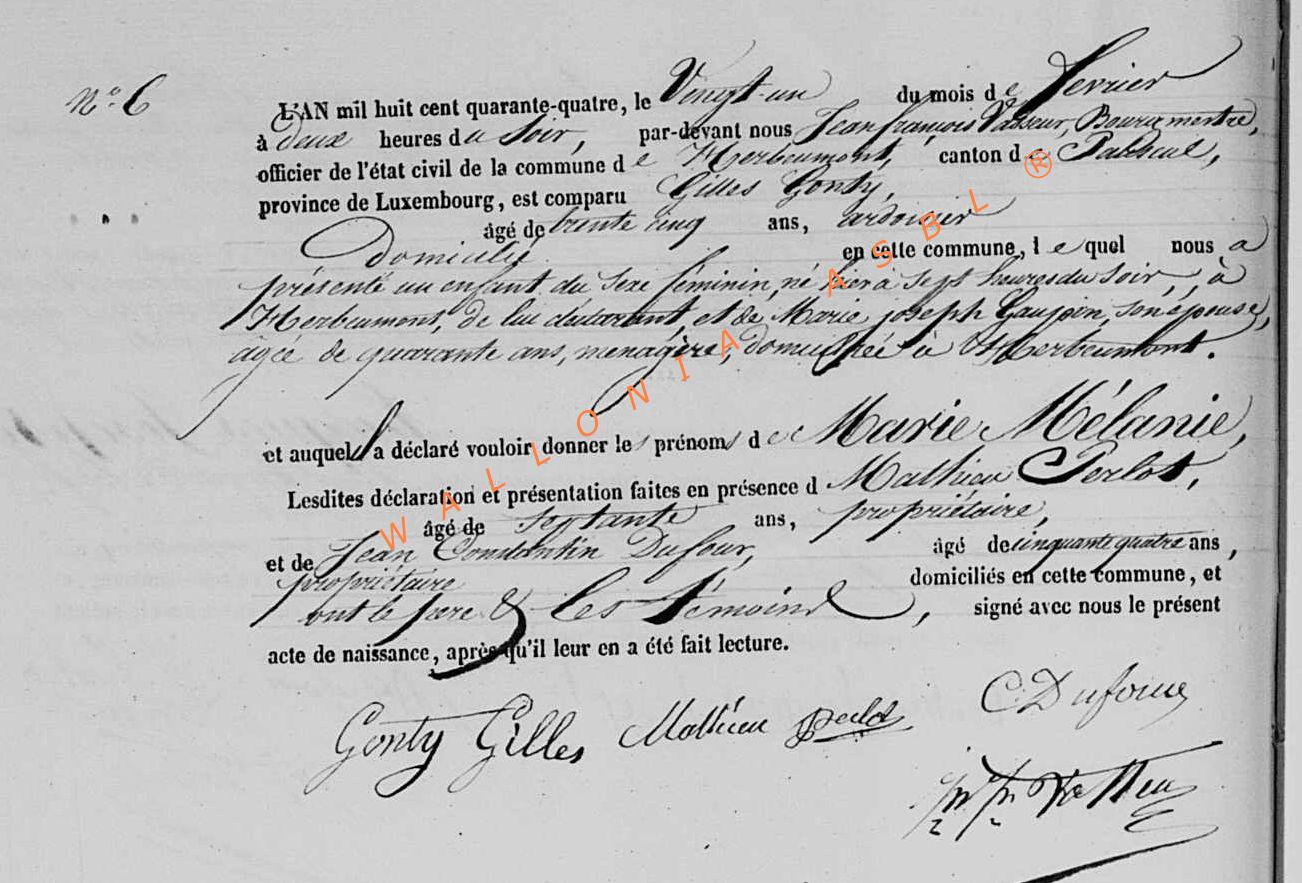 N.º 6
L'AN mil huit cent quarante-quatre, le Vingt-un du mois de fevrier
à deux heures du Soir, par-devant nous Jean françois Vasseur, Bourgmestre,
officier de l'état civil de la commune de Herbeumont, canton de Paliseul,
province de Luxembourg, est comparu Gilles Gonty,
âgé de trente cinq ans, ardoisier
Domicilié en cette commune, lequel nous a
présenté un enfant du sexe féminin, né hier à sept heures du soir, à
Herbeumont, de lui déclarant, et de Marie joseph Gaupin, son épouse,
âgée de quarante ans, menagère, domiciliée à Herbeumont.
et auquel il a déclaré vouloir donner les prénoms de Marie Mélanie,
Lesdites déclaration et présentation faites en présence d Mathieu Perlot,
âgé de septante ans, propriétaire,
et de Jean Constantin Dufour, âgé de cinquante quatre ans,
propriétaire domiciliés en cette commune, et
ont le pere & les témoins, signé avec nous le présent
acte de naissance, après qu'il leur en a été fait lecture.
Gonty Gilles Mathieu perlot C. Dufour
WALLONIA ASBL ®